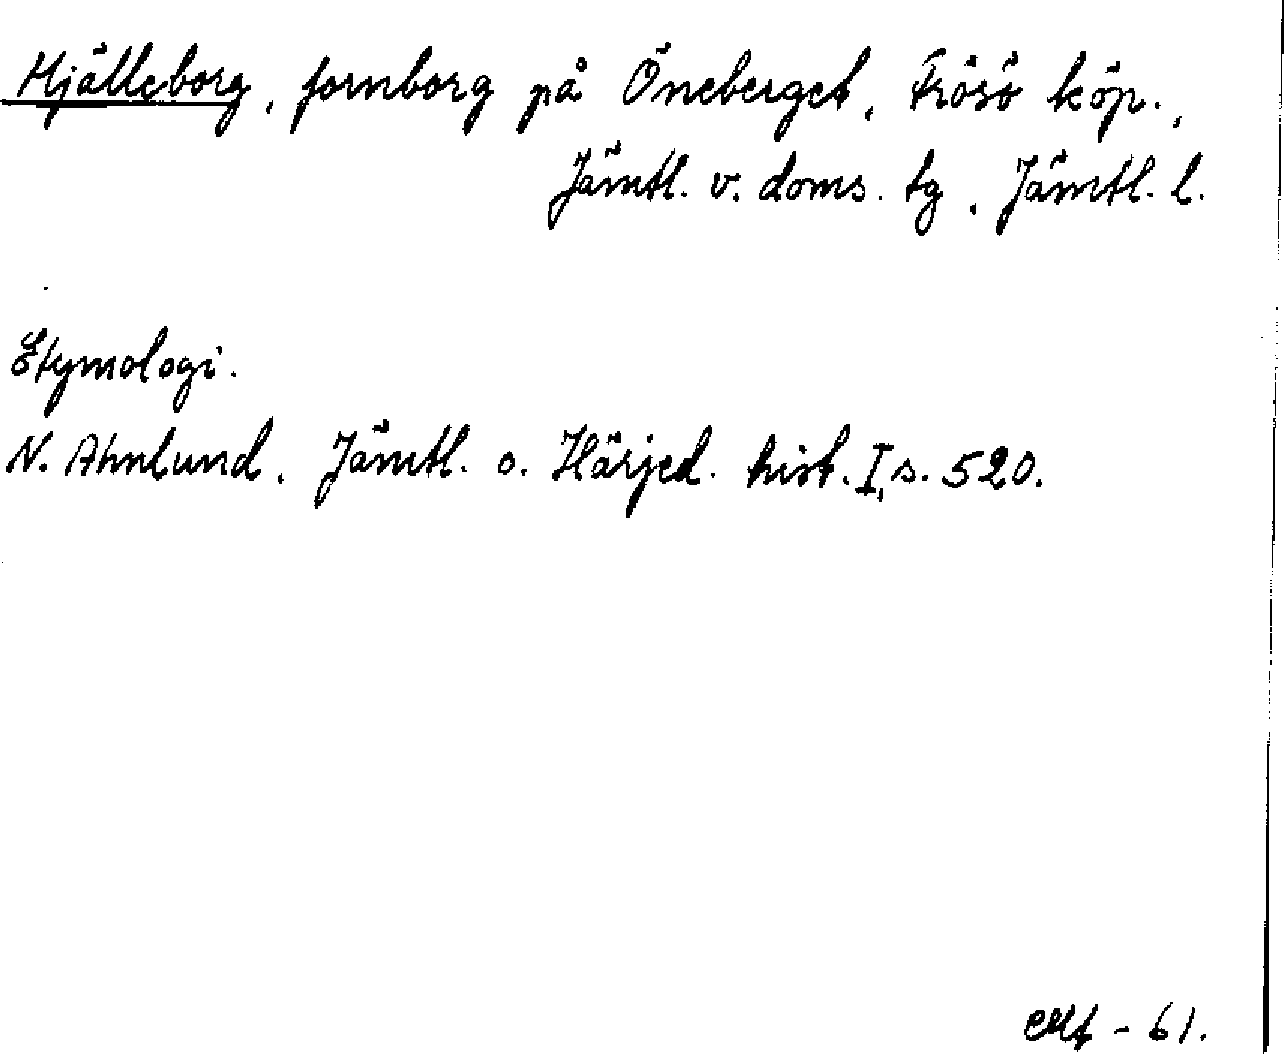 Hjälleborg, fornborg på Öneberget, Frösö köp.,
Jämtl. v. doms. tg, Jämtl. l.
Etymologi.
N. Ahnlund, Jämtl. o. Härjed. hist. I, s. 520.
- 61.